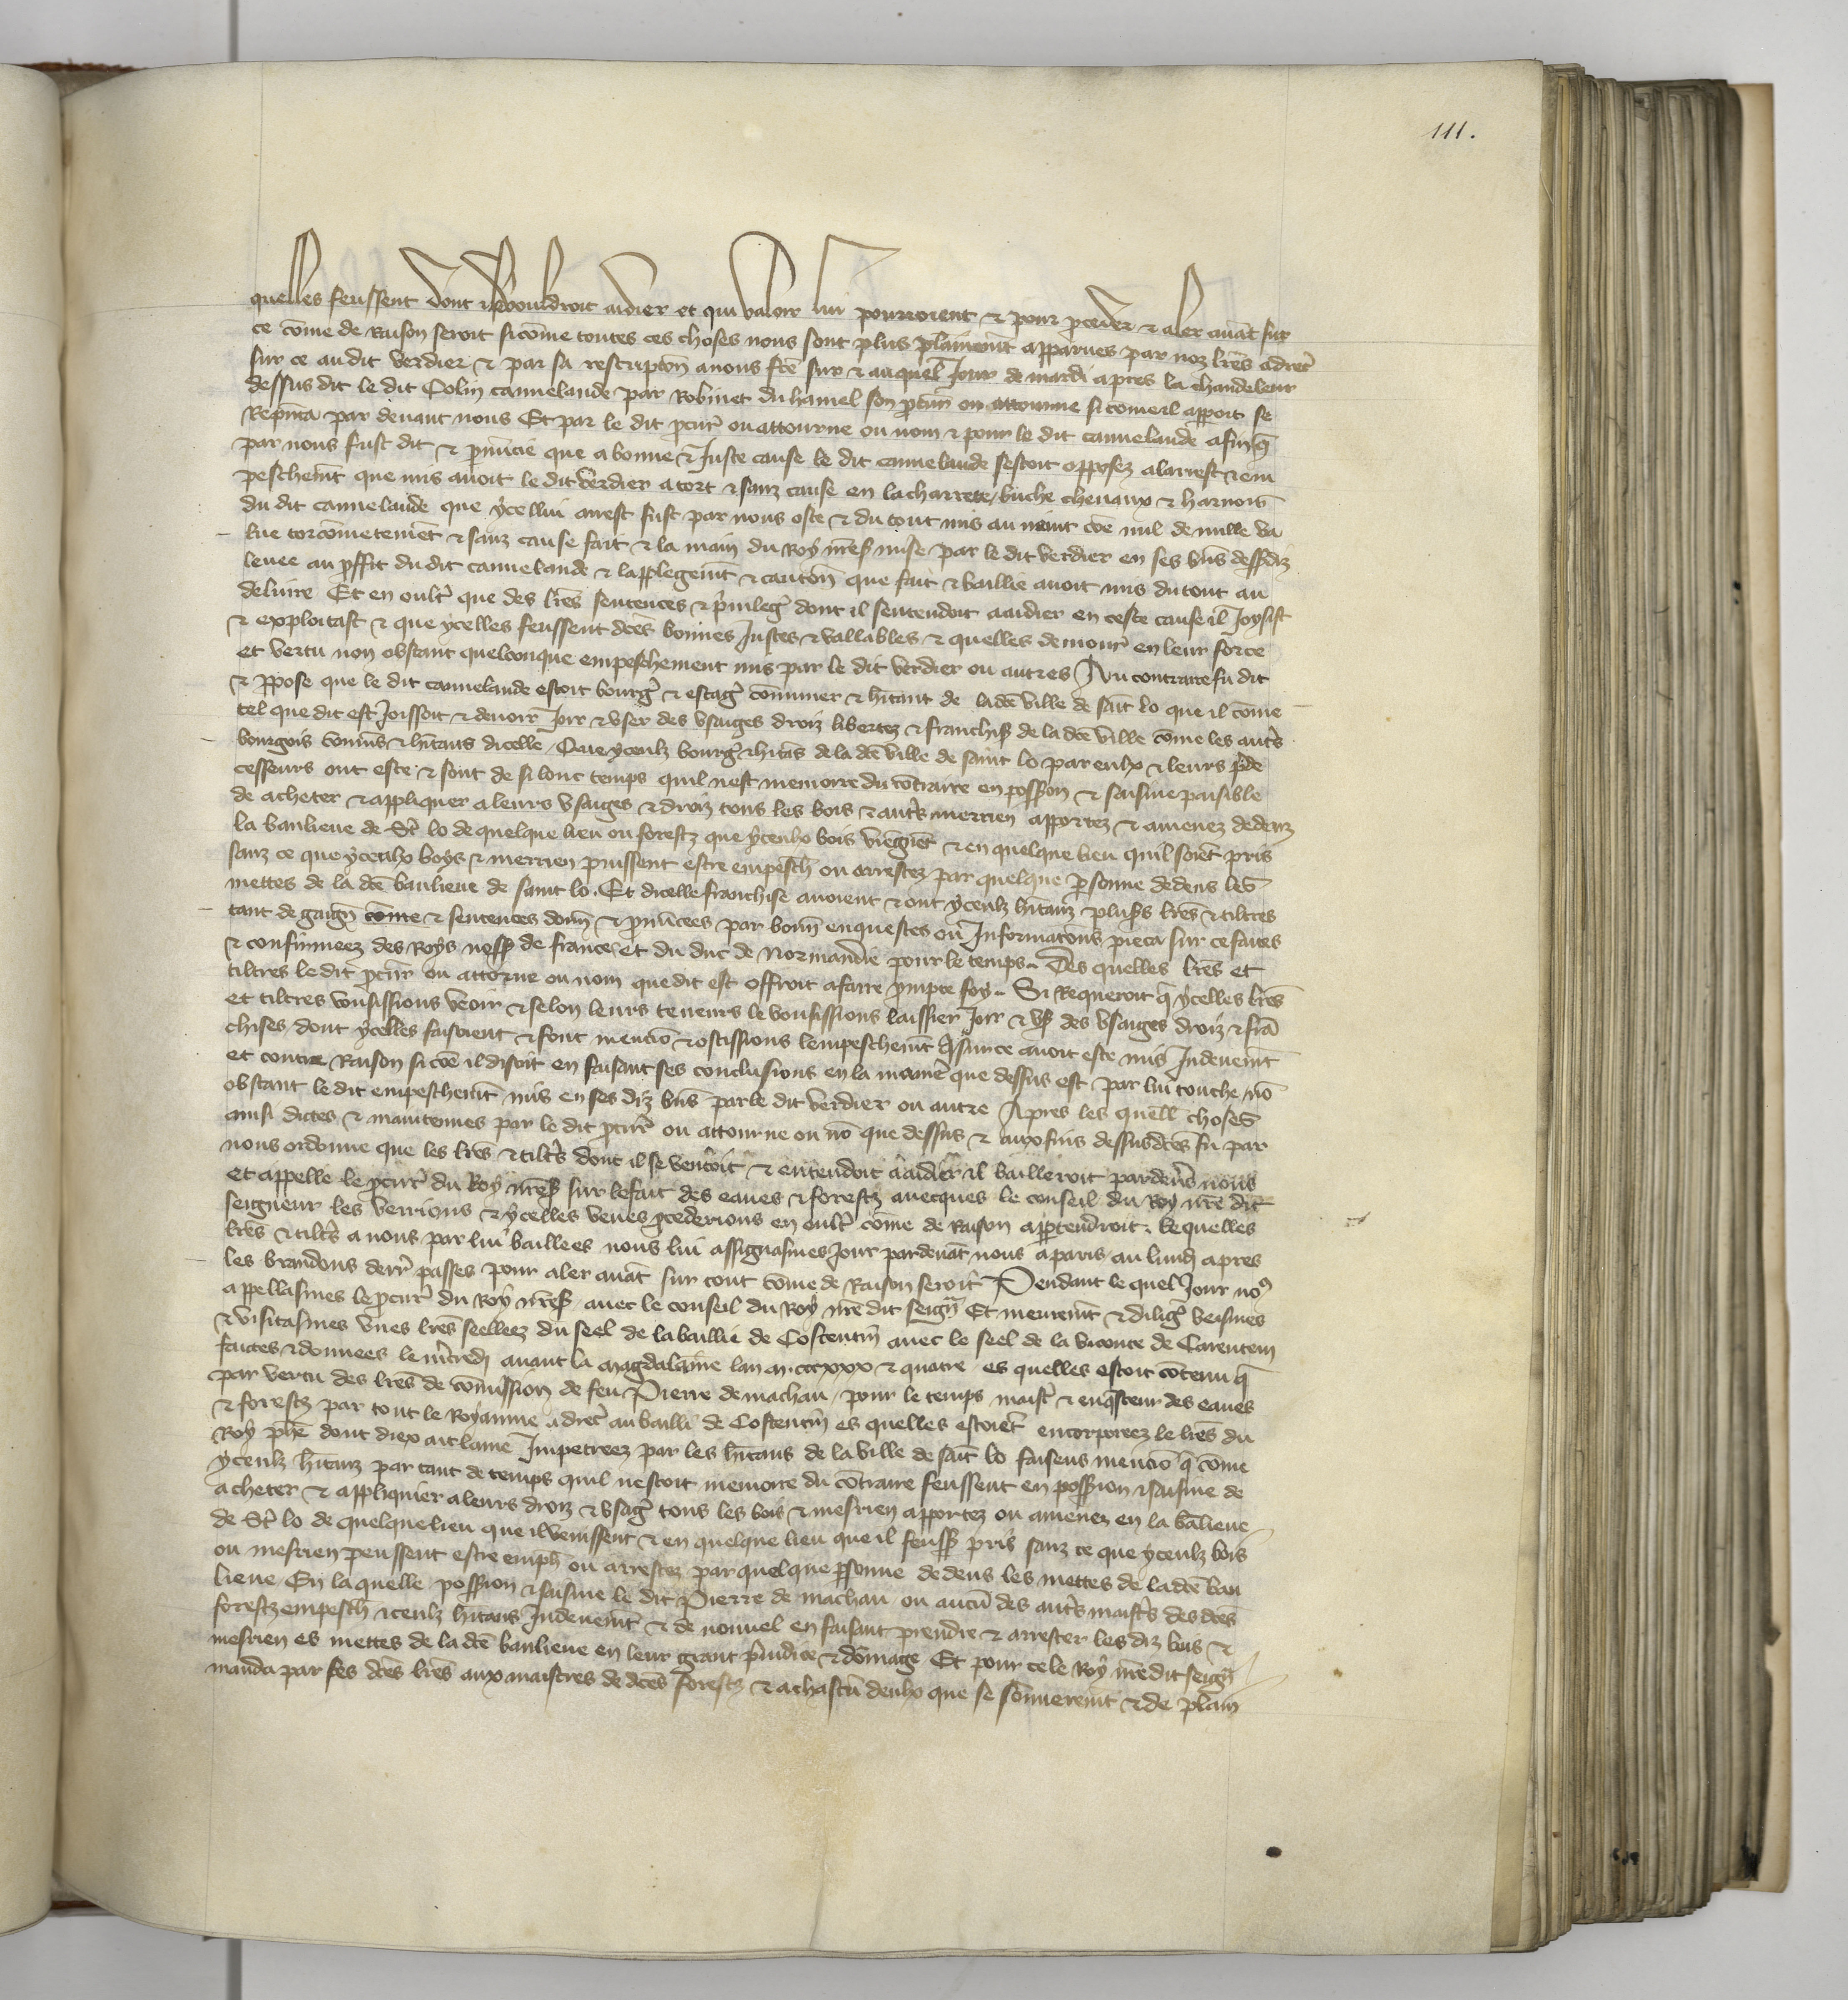 111.
quelles feussent dont il se vouldroit aidier et qui valoir lui pourroient & pour pceder & aler auāt sur
ce cōme de Raison seroit si cōme toutes ces choses nous sont plus plainemt̄ apparues par noz lr̄es adrec̄
sur ce au dit verdier & par sa rescriptōn a nous fcē sur & au quel Jour de mardi apres la chandeleur
dessus dit le dit Colin cannelande par Robinet du hamel son pcur̄ ou attourne si come il apport se
Rep̄nta par deuant nous Et par le dit pcur̄ ou attourne ou nom & pour le dit cannelande afin q̄
par nous fust dit & pnūcie que a bonne & Juste cause le dit cannelande sestoit opposez a larrest & em
peschemt̄ que mis auoit le dit verdier a tort & sanz cause en la charrete / buche cheuaux & harnois
du dit cannelande que ycellui arrest fust par nous oste & du tout mis au neint cōe nul de nulle va
lue torconnietemēt & sanz cause fait & la main du Roy nr̄e s mise par le dit verdier en ses bn̄s dess diz
leuee au pffit du dit cannelande & lapplegemt̄ & cautōn que fait & baillie auoit mis du tout au
deliure Et en oultr̄ que des lr̄es sentences & priuileḡ dont il sentendoit a aidier en ceste cause il Joysist
& exploitast & que ycelles feussent dcēs bonnes Justes & vallables & quelles demour̄ en leur force
et vertu non obstant quelconque empeschement mis par le dit verdier ou autres Au contraire fu dit
& ppose que le dit cannelande estoit bourḡ & estaḡ cōmuner & hītant de ladcē ville de saīt lo que il cōme
tel que dit est Joissoit & deuoir Joir & vser des vsaiges droiz libertez & franchis de la dcē ville cōme les autr̄s
bourgois cōmūs & hītans dicelle / Que yceulz bourḡ & hitās de la dcē ville de saint lo par eulx & leurs p̄de
cesseurs ont este & sont de si lonc temps quil nest memoire du cōtraire en possion & saisine paisible
de acheter & appliquer a leurs vsaiges & droiz tous les bois & autr̄s merrien apportez & amenez dedenz
la banlieue de St̄ lo de quelque lieu ou forestz que yceulx bois viēgnēt & en quelque lieu quil soiēt pris
sanz ce que yceulx boys & merrien puissent estre empesch̄ ou arrestez par quelque psonne dedens les
mettes de la dcē banlieue de saint lo. Et dicelle franchise auoient & ont yceulz hītanz plusrs lr̄es & tiltres
tant de gaigñ cōme & sentences donn̄ & pnūcees par bonn̄ enquestes ou Informatōns pieca sur ce faites
& confirmeez des Roys nos s de france et du duc de Normandie pour le temps.. Des quelles lr̄es et
tiltres le dit pcur̄ ou attorne ou nom que dit est offroit a faire prmpte foy.. Si Requeroit q̄ ycelles lr̄es
et tiltres vousissions veoir & selon leurs teneurs le vousissions laissier Joir & vs des vsaiges droiz & frā
chises dont ycelles faisoient & font mencīo & ostissions lempeschemt̄ q sur ce auoit este mis Indeuemt̄
et contre Raison si cōe il disoit en faisant ses conclusions en la manīe que dessus est par lui touche / nō
obstant le dit empeschemt̄ mis en ses diz bn̄s par le dit verdier ou autre Apres les quell̄ choses
ainsi dictes & maintenues par le dit pcur̄ ou attourne ou nō que dessus & aux fins dessusdcēs fu par
nous ordonne que les lr̄es & tiltr̄s dont il se ventoit & entendoit a aidier il bailleroit par deuers nous
et appelle le pcur̄ du Roy nr̄e s sur le fait des eaues & forestz auecques le conseil du Roy nr̄e dit
seigneur les verrions & ycelles veues pcederions en oultr̄ cōme de Raison appartendroit. Lequelles
lr̄es & tiltr̄s a nous par lui baillees nous lui assignasmes Jour par deuāt nous a paris au lundi apres
les brandons derr̄ passes pour aler auāt sur tout cōme de Raison seroit Pendant le quel Jour no9
appellasmes le pcur̄ du Roy nr̄e s / auec le conseil du Roy nr̄e dit seign̄ Et meuremt̄ & diliḡ veismes
& visitasmes vnes lr̄es seelleez du seel de la baillie de Costentin auec le seel de la viconte de Carenten
faictes & donnees le mr̄credi auant la magdalaine lan m. ccc xxx & quatre es quelles estoit cōtenu q̄
par vertu des lr̄es de cōmission de feu Pierre de machau / pour le temps maistr̄ & enqsteur des eaues
& forestz par tout le Royaume adrec̄ au bailli de Costentin es quelles estoiēt encorporeez le lr̄es du
Roy phē dont diex ait lame Impetreez par les hītans de la ville de saīt lo faisens mencīo q̄ cōme
yceulz hītanz par tant de temps quil nestoit memoire du cōtraire feussent en possion & saisine de
acheter & appliquier a leurs droiz & vsaḡ tous les bois & mesrien apportez ou amenez en la bālieue
de St̄ lo de quelque lieu que il venissent & en quelque lieu que il feuss pris sanz ce que yceulz bois
ou mesrien peussent estre emph̄ ou arrestez par quelque psonne dedens les mettes de ladcē ban
lieue En la quelle possion & saisine le dit Pierre de machau ou aucū des autr̄s maistr̄s des dcēs
forestz empesch̄ yceulz hītans Indeuemt̄ & de nouuel en faisant prendre & arrester les diz bois &
mesrien es mettes de la dcē banlieue en leur grant p̄iudice & dōmage Et pour ce le Roy nr̄e dit seign̄
manda par ses dcēs lr̄es aux maistres de dcēs forestz & a chascū deulx que se sōmeremt̄ & de plain